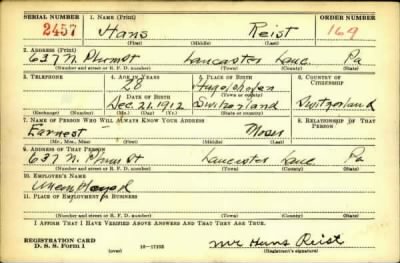 SERIAL NUMBER 1. NAME (Print) ORDER NUMBER
2457 Hans Reist 169
(First) (Middle) (Last)
2. ADDRESS (Print)
637 N. Plum St Lancaster Lanc. Pa
(Number and street or R. F. D. number) (Town) (County) (State)
3. TELEPHONE 4. AGE IN YEARS 5. PLACE OF BIRTH 6. COUNTRY OF CITIZENSHIP
28
(Town or county)
DATE OF BIRTH
Dec. 21, 1912 Switzerland Switzerland
(Exchange) (Number) (Mo.) (Day) (Yr.) (State or country)
7. NAME OF PERSON WHO WILL ALWAYS KNOW YOUR ADDRESS 8. RELATIONSHIP OF THAT PERSON
Earnest Moser
(Mr., Mrs., Miss) (First) (Middle) (Last)
9. ADDRESS OF THAT PERSON
637 N. Plum St Lancaster Lanc Pa
(Number and street or R. F. D. number) (Town) (County) (State)
10. EMPLOYER'S NAME
Unemployed
11. PLACE OF EMPLOYMENT OR BUSINESS
(Number and street or R. F. D. number) (Town) (County) (State)
I AFFIRM THAT I HAVE VERIFIED ABOVE ANSWERS AND THAT THEY ARE TRUE.
REGISTRATION CARD
D. S. S. Form 1 (over) 16—17105 Mr Hans Reist
(Registrant's signature)